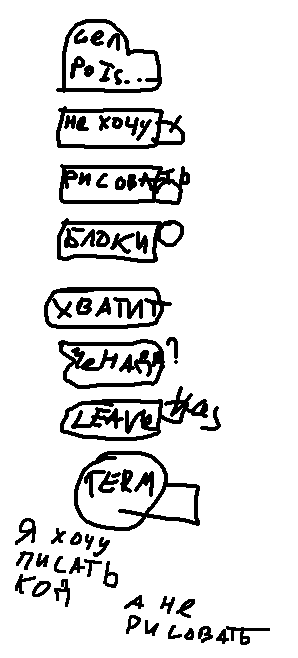 сел
PoIs...
не хочу
рисовать
БЛОКИ
ХВАТИТ
?
LEAVE
TERM
Я хочу
ПИСАТЬ
КОД
А НЕ
РИСОВАТЬ